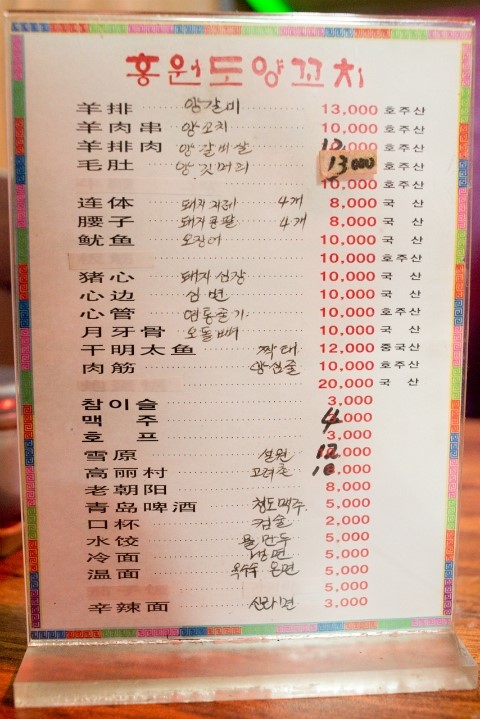 홍원도양꼬치
羊排 양갈비 13,000 호주산
羊肉串 양꼬치 10,000 호주산
羊排肉 양갈비살 호주산
毛肚 13000 호주산
10,000 호주산
连体 돼지 4개 8,000 국산
腰子 돼지콩팥 4개 8,000 국산
鱿鱼 오징어 10,000 국산
10,000 호주산
猪心 돼지심장 10,000 국산
心边 10,000 국산
心管 10,000 호주산
月牙骨 오돌뼈 10,000 국산
干明太鱼 짝태 12,000 중국산
肉筋 양심줄 10,000 호주산
20,000 국산
참이슬 3,000
맥주 4,000
호프 3,000
雪原 설원 12
高丽村 고려촌
老朝阳 8,000
青岛啤酒 청도맥주 5,000
口杯 컵술 2,000
水饺 물만두 5,000
冷面 냉면 5,000
温面 옥수수 온면 5,000
5,000
辛辣面 신라면 3,000